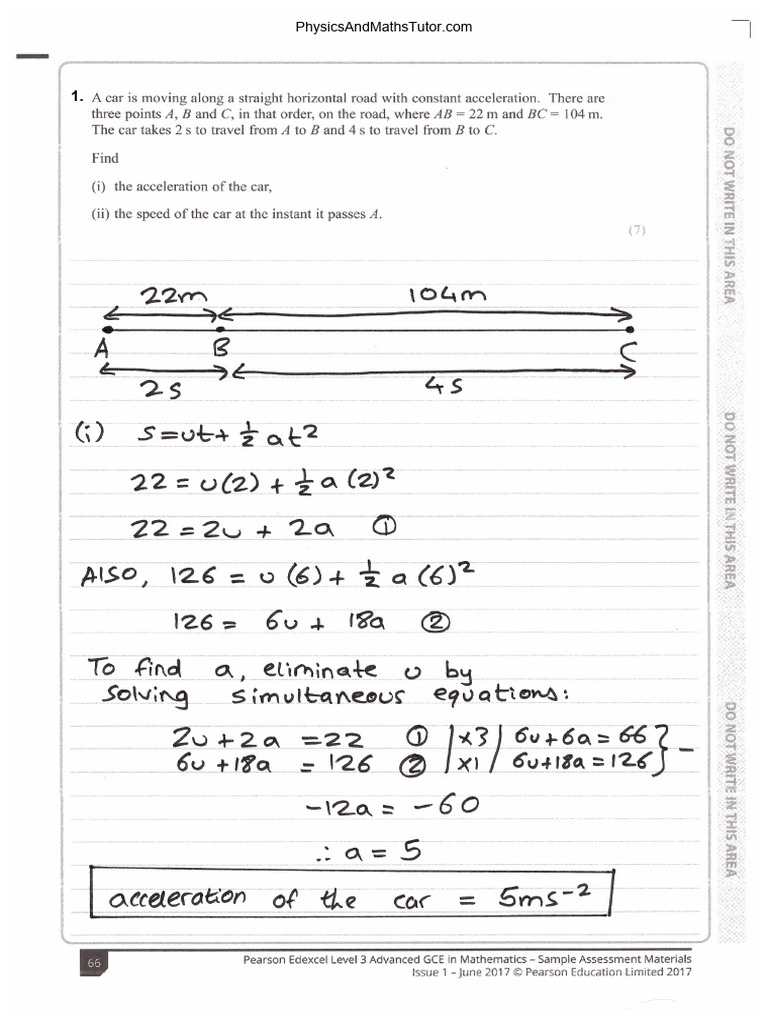 PhysicsAndMathsTutor.com
1. A car is moving along a straight horizontal road with constant acceleration. There are
three points A, B and C, in that order, on the road, where AB = 22 m and BC = 104 m.
The car takes 2 s to travel from A to B and 4 s to travel from B to C.
Find
(i) the acceleration of the car,
(ii) the speed of the car at the instant it passes A.
(7)
22m 104m
A B C
2s 4s
(i) s=ut+ ½ at²
22 = u(2) + ½ a (2)²
22 = 2u + 2a ①
Also, 126 = u (6) + ½ a (6)²
126 = 6u + 18a ②
To find a, eliminate u by
solving simultaneous equations:
2u + 2a = 22 ① | ×3 | 6u + 6a = 66 } –
6u + 18a = 126 ② | ×1 | 6u + 18a = 126
-12a = -60
∴ a = 5
acceleration of the car = 5ms⁻²
66
Pearson Edexcel Level 3 Advanced GCE in Mathematics – Sample Assessment Materials
Issue 1 – June 2017 © Pearson Education Limited 2017
DO NOT WRITE IN THIS AREA
DO NOT WRITE IN THIS AREA
DO NOT WRITE IN THIS AREA